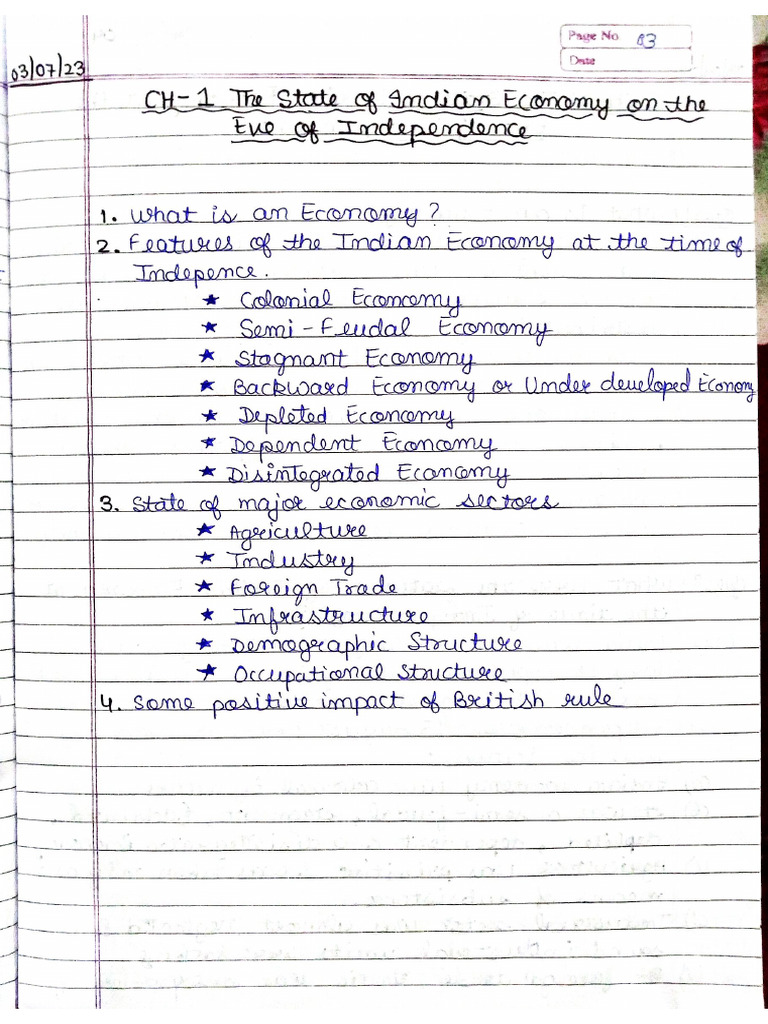 Page No 03
Date
03/07/23
CH-1 The State of Indian Economy on the
Eve of Independence
1. What is an Economy?
2. Features of the Indian Economy at the time of
Indepence.
★ Colonial Economy
★ Semi-Feudal Economy
★ Stagnant Economy
★ Backward Economy or Under developed Economy
★ Depleted Economy
★ Dependent Economy
★ Disintegrated Economy
3. State of major economic sectors
★ Agriculture
★ Industry
★ Foreign Trade
★ Infrastructure
★ Demographic Structure
★ Occupational Structure
4. Some positive impact of British rule